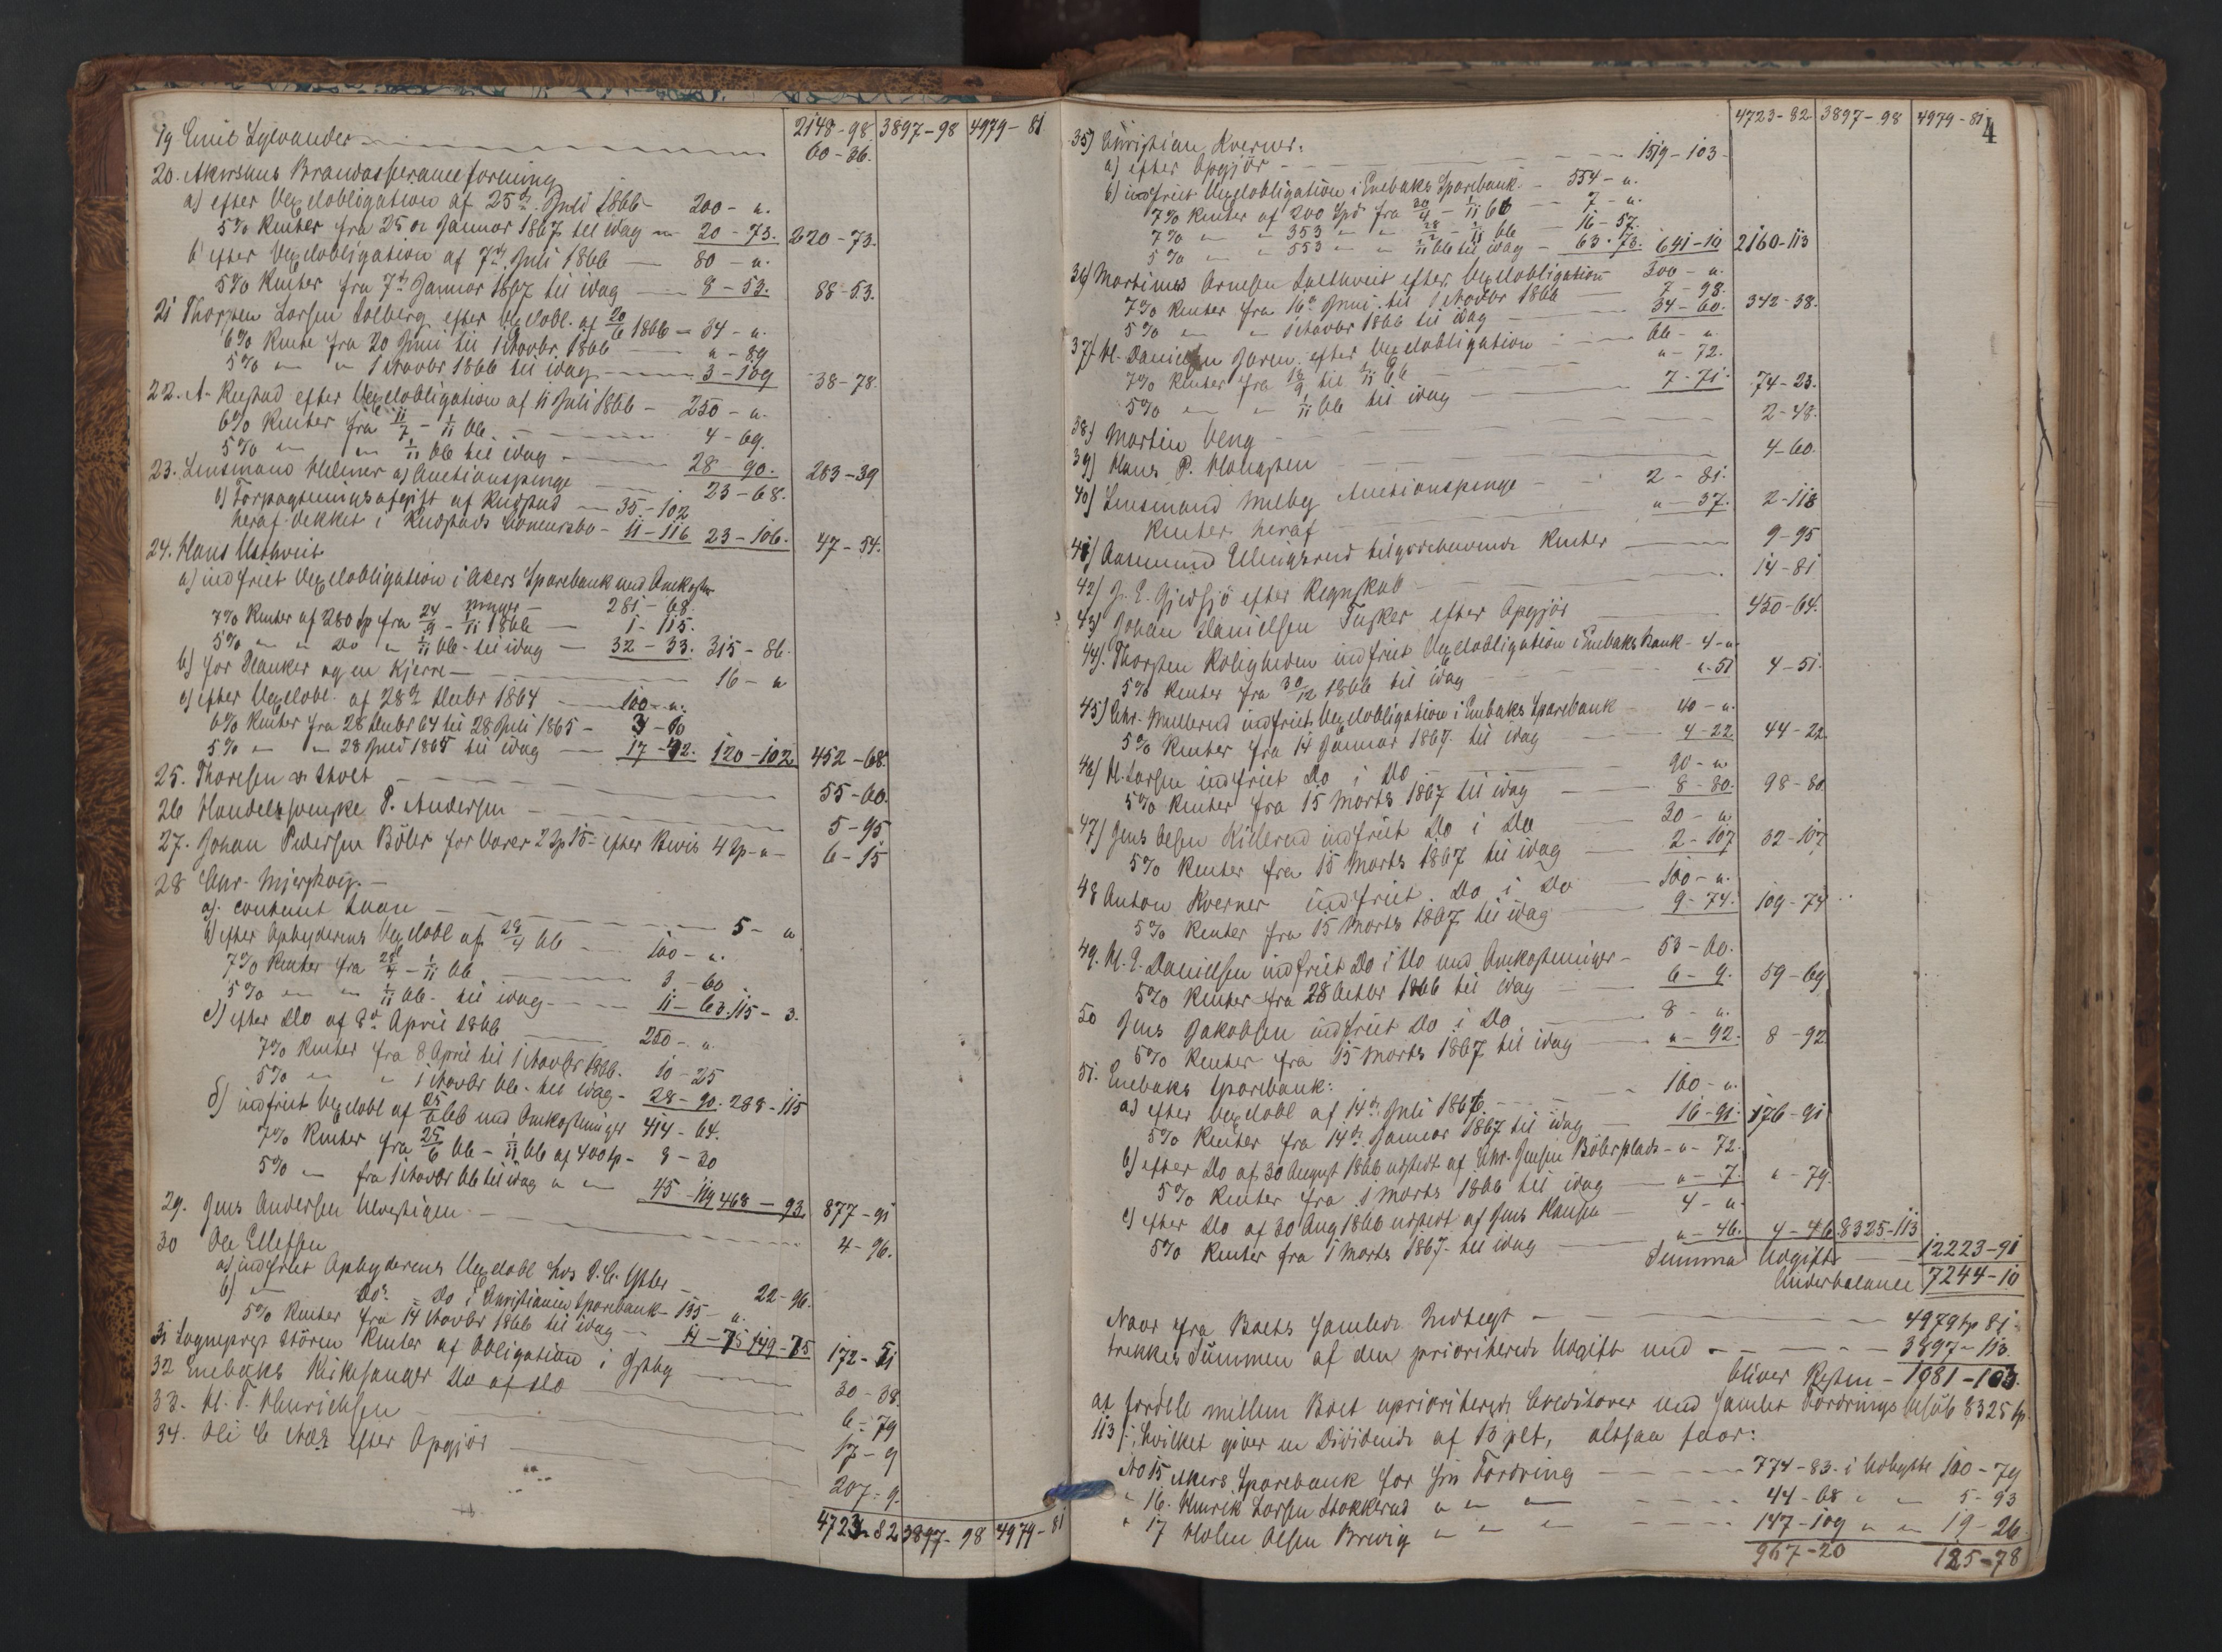 2148-98. 3897-98 4979-81
19 Emil Sylvander 60-36.
20. Akershus Brandassuranceforening
a) efter Vexelobligation af 25de Juli 1866 - 200 - "
5% Renter fra 25de Januar 1867 til idag - 20-73. 220-73.
b) efter Vexelobligation af 7de Juli 1866 - 80 - "
5% Renter fra 7de Januar 1867 til idag - 8-53. 88-53.
21 Thorsten Larsen Solberg efter Vexelobl. af 20/6 1866 - 34 - "
6% Rente fra 20 Juni til 1 Novbr. 1866 - " - 89
5% " " 1 Novbr 1866 til idag - 3-109 38-78.
22. A. Rustad efter Vexelobligation af 11 Juli 1866 - 250 - "
6% Renter fra 11/7 - 1/11 66 - 4-69.
5% " " 1/11 66 til idag - 28-90. 283-39
23. Lensmand Helmer a) Auctionspenge 23-68.
b) Forpagtningsafgift af Rustad - 35-102
heraf dekket i Rustads Concursbo - 11-116 23-106. 47-54.
24. Hans Østhveit
a) indfriet Vexelobligation i Akers Sparebank med Omkostninger - 281-68.
7% Renter af 280 Sp fra 24/9 - 1/11 1866 - 1-115.
5% " " Do " 1/11 66 til idag - 32-33. 315-86.
b) for Planker og en Kjerre - 16 - "
c) efter Vexelobl. af 28de Decbr 1864 - 100 - "
6% Renter fra 28 Decbr 64 til 28 Juli 1865 - 3-60
5% " " 28 Juli 1865 til idag - 17-42. 120-102 452-68.
25. Thoresen & Skolt 55-60.
26 Handelssvenske P. Andersen - 5-95
27. Johan Pedersen Böler for Varer 2 Sp 15 efter Bevis 4 Sp - " - 6-15
28 Chr. Mjerskoug.
a). contant Laan - 5 - "
b) efter Opbyderens Vexelobl af 28/4 66 - 100 - "
7% Renter fra 28/4 - 1/11 66 - 3-60
5% " " 1/11 66 til idag - 11-63. 115-3.
c) efter Do af 8de April 1866 250 - "
7% Renter fra 8 April til 1 Novbr 1866. 10-25
5% " " 1 Novbr 66 til idag - 28-90. 288-115
d) indfriet Vexelobl af 25/6 66 med Omkostninger 414-64.
7% Renter fra 25/6 66 - 1/11 66 af 400 Sp - 8-20
5% " fra 1 Novbr 66 til idag " " 45-119 468-93. 877-91
29. Jens Andersen 4-96.
30 Ole Ellefsen
a) indfriet Opbyderens Vexelobl hos 22-96.
b) " Do. Do i Christiania Sparebank - 135 - "
5% Renter fra 14 Novbr 1866 til idag - 14-75 149-75 172-51
31 Sognepræst Stören Renter af Obligation i 30-38.
32 Enebaks Kirkesanger Do af Do 6-79
33. H. T. Henrichsen 17-9
34. efter Opgjör 207-9.
4723-82 3897-98 4979-81
4723-82 3897-98 4979-81 4
35) Christian Kverner:
a) efter Opgjör - 1519-103
b) indfriet Vexelobligation i Enebaks Sparebank - 554 - "
7% Renter af 200 Spd fra 30/4 - 1/11 66 - 7 - "
7% " " 353 " " 28/2 - 1/11 66 - 16-57.
5% " " 553 " " 1/11 66 til idag - 63-73. 641-10 2160-113
36) Martinus Arnesen Østhveit efter Vexelobligation 300 - "
7% Renter fra 16de Juni til 1 Novbr 1866 7-98.
5% " " 1 Novbr 1866 til idag - 34-60. 342-38.
37) H. Danielsen efter Vexelobligation - 66 - "
7% Renter fra 18/9 til 1/11 66 " - 72.
5% " " 1/11 66 til idag - 7-71. 74-23.
38) Martin Veng - 2-48.
39) Hans P. 4-60.
40) Lensmand Melby Auctionspenge - 2-81.
Renter heraf " - 37. 2-118
41) Aamund Ellingsrud tilgodehavende Renter 9-95
42) efter Regnskab 14-81
43) Johan Danielsen Tusker efter Opgjör 450-64.
44). Thorsten Roligheden indfriet Vexelobligation i Enebaks Bank - 4 - "
5% Renter fra 30/12 1866 til idag " - 51 4-51.
45) Chr. indfriet Vexelobligation i Enebaks Sparebank 40 - "
5% Renter fra 14 Januar 1867 til idag 4-22 44-22
46) H. Larsen indfriet Do i Do 90 - "
5% Renter fra 15 Marts 1867 til idag 8-80. 98-80
47) Jens Olsen indfriet Do i Do 30 - "
5% Renter fra 15 Marts 1867 til idag 2-107 32-107
48 Anton Kverner indfriet Do i Do 100 - "
5% Renter fra 15 Marts 1867 til idag 9-74. 109-74
49. H. E. Danielsen indfriet Do i Do med Omkostninger - 53-60.
5% Renter fra 28 Octbr 1866 til idag 6-9. 59-69
50 Jens Jakobsen indfriet Do i Do 8 - "
5% Renter fra 15 Marts 1867 til idag " - 92. 8-92
51. Enebaks Sparebank:
a) efter Vexelobl af 14de Juli 1866 - 160 - "
5% Renter fra 14de Januar 1867 til idag 16-91. 176-91
b) efter Do af 30 August 1866 udstedt af Chr. Jensen Bölerplads - " - 72.
5% Renter fra 1 Marts 1866 til idag " - 7. " - 79.
c) efter Do af 30 Aug 1866 udstedt af Jens Hansen 4 - "
5% Renter fra 1 Marts 1867 til idag " - 46. 4-46. 8325-113
Summa Udgift 12223-91
Underbalance 7244-10
Naar fra Boets samlede Indtægt - 4979 Sp 81
trækkes Summen af den prioriterede Udgift med - 3897-113.
bliver Resten - 1081-103.
at fordele mellem Boet uprioriterede Creditorer med samlet Fordringsbelöb 8325 Sp
113 s; hvilket giver en Dividende af 13 pCt, altsaa faar:
No 15 Akers Sparebank for sin Fordring - 774-83. i Udbytte 100-79
" 16. Henrik Larsen Stokkerud " " " 44-68 " " 5-93
" 17 Holm Olsen Brevig " " " 147-109 " " 19-26
967-20 125-78